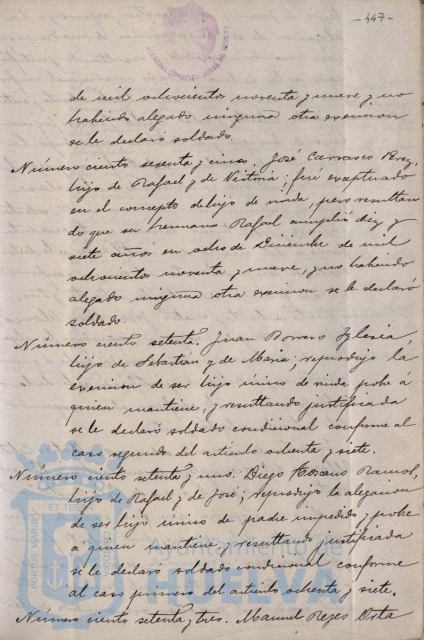 - 447 -
de mil ochocientos noventa y nueve y no
habiendo alegado ninguna otra exencion
se le declaró soldado.
Número ciento sesenta y cinco. José Carrasco Perez,
hijo de Rafael y de Victoria: fué exceptuado
en el concepto de hijo de viuda, pero resultan
do que su hermano Rafael cumplió diez y
siete años en ocho de Diciembre de mil
ochocientos noventa y nueve, y no habiendo
alegado ninguna otra exencion se le declaró
soldado.
Número ciento setenta. Juan Borrero Iglesia,
hijo de Sebastian y de Maria; reprodujo la
exencion de ser hijo único de viuda pobre á
quien mantiene, y resultando justificada
se le declaró soldado condicional conforme al
caso segundo del artículo ochenta y siete.
Número ciento setenta y uno. Diego
hijo de Rafael y de José; reprodujo la alegacion
de ser hijo único de padre impedido y pobre
á quien mantiene y resultando justificada
se le declaró soldado condicional conforme
al caso primero del artículo ochenta y siete.
Número ciento setenta y tres. Manuel Reyes Orta
Ayuntamiento de
HUELVA